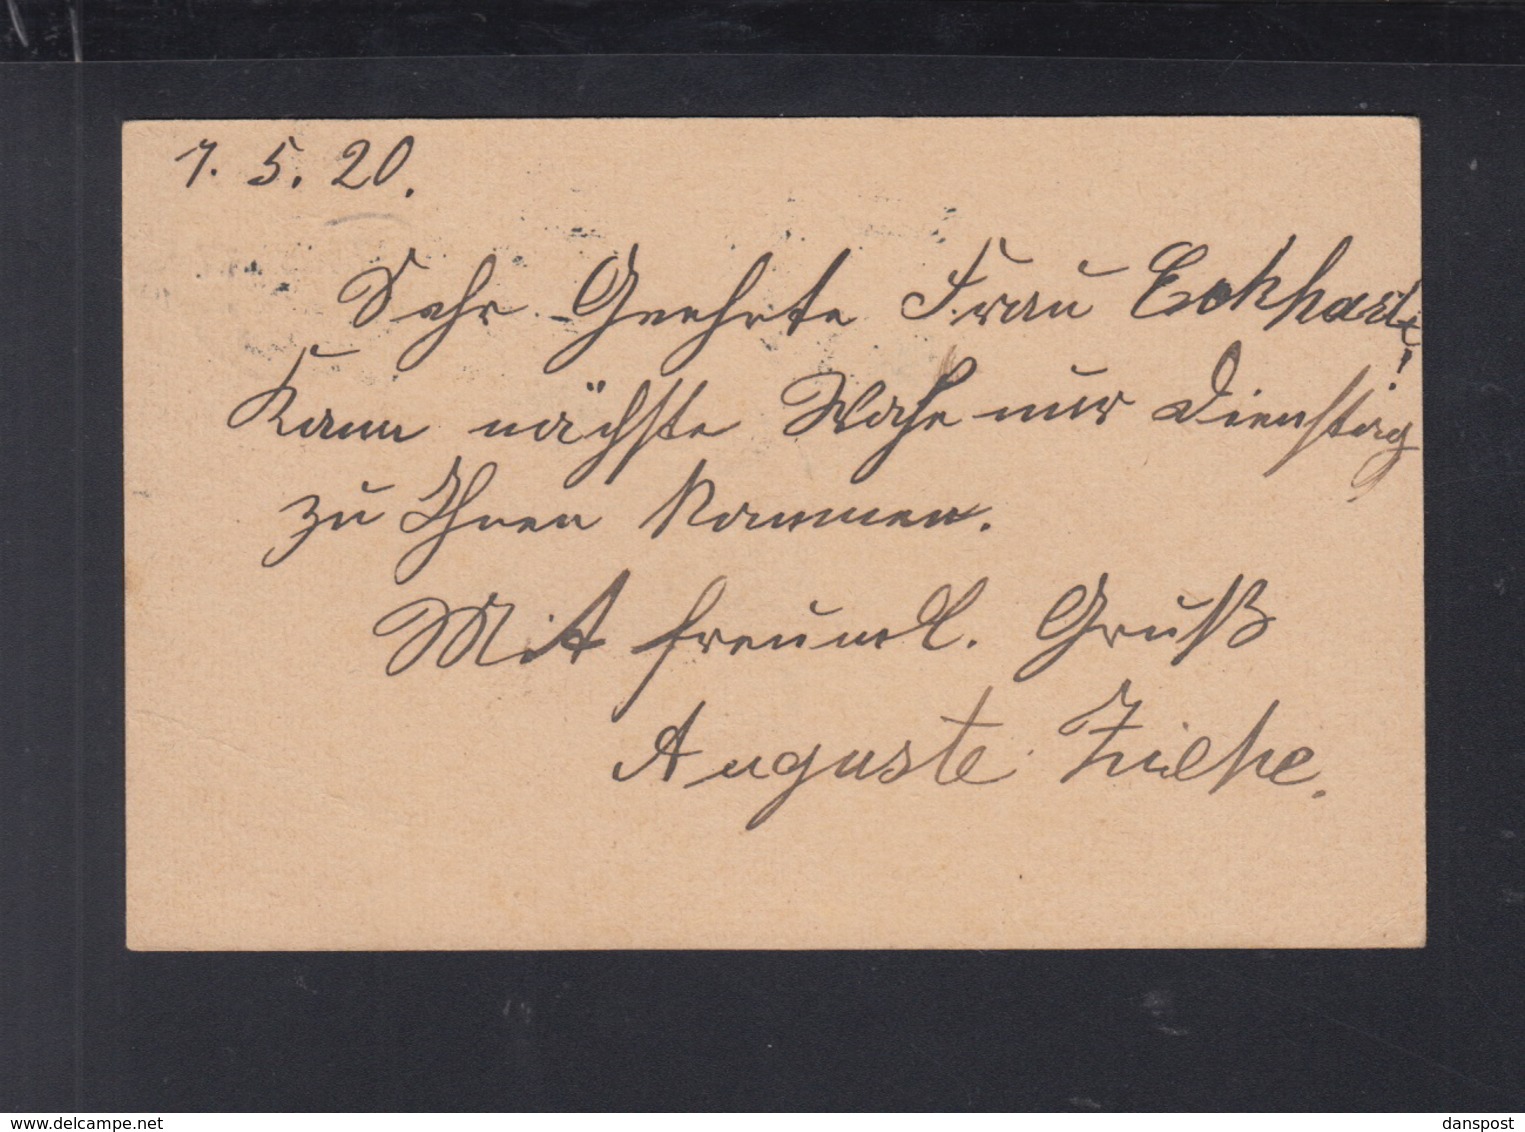 7. 5. 20.
Sehr Geehrte Frau Eckhardt!
Kann nächste Woche nur Dienstag
zu Ihnen kommen.
Mit freundl. Gruß
Auguste
danspost